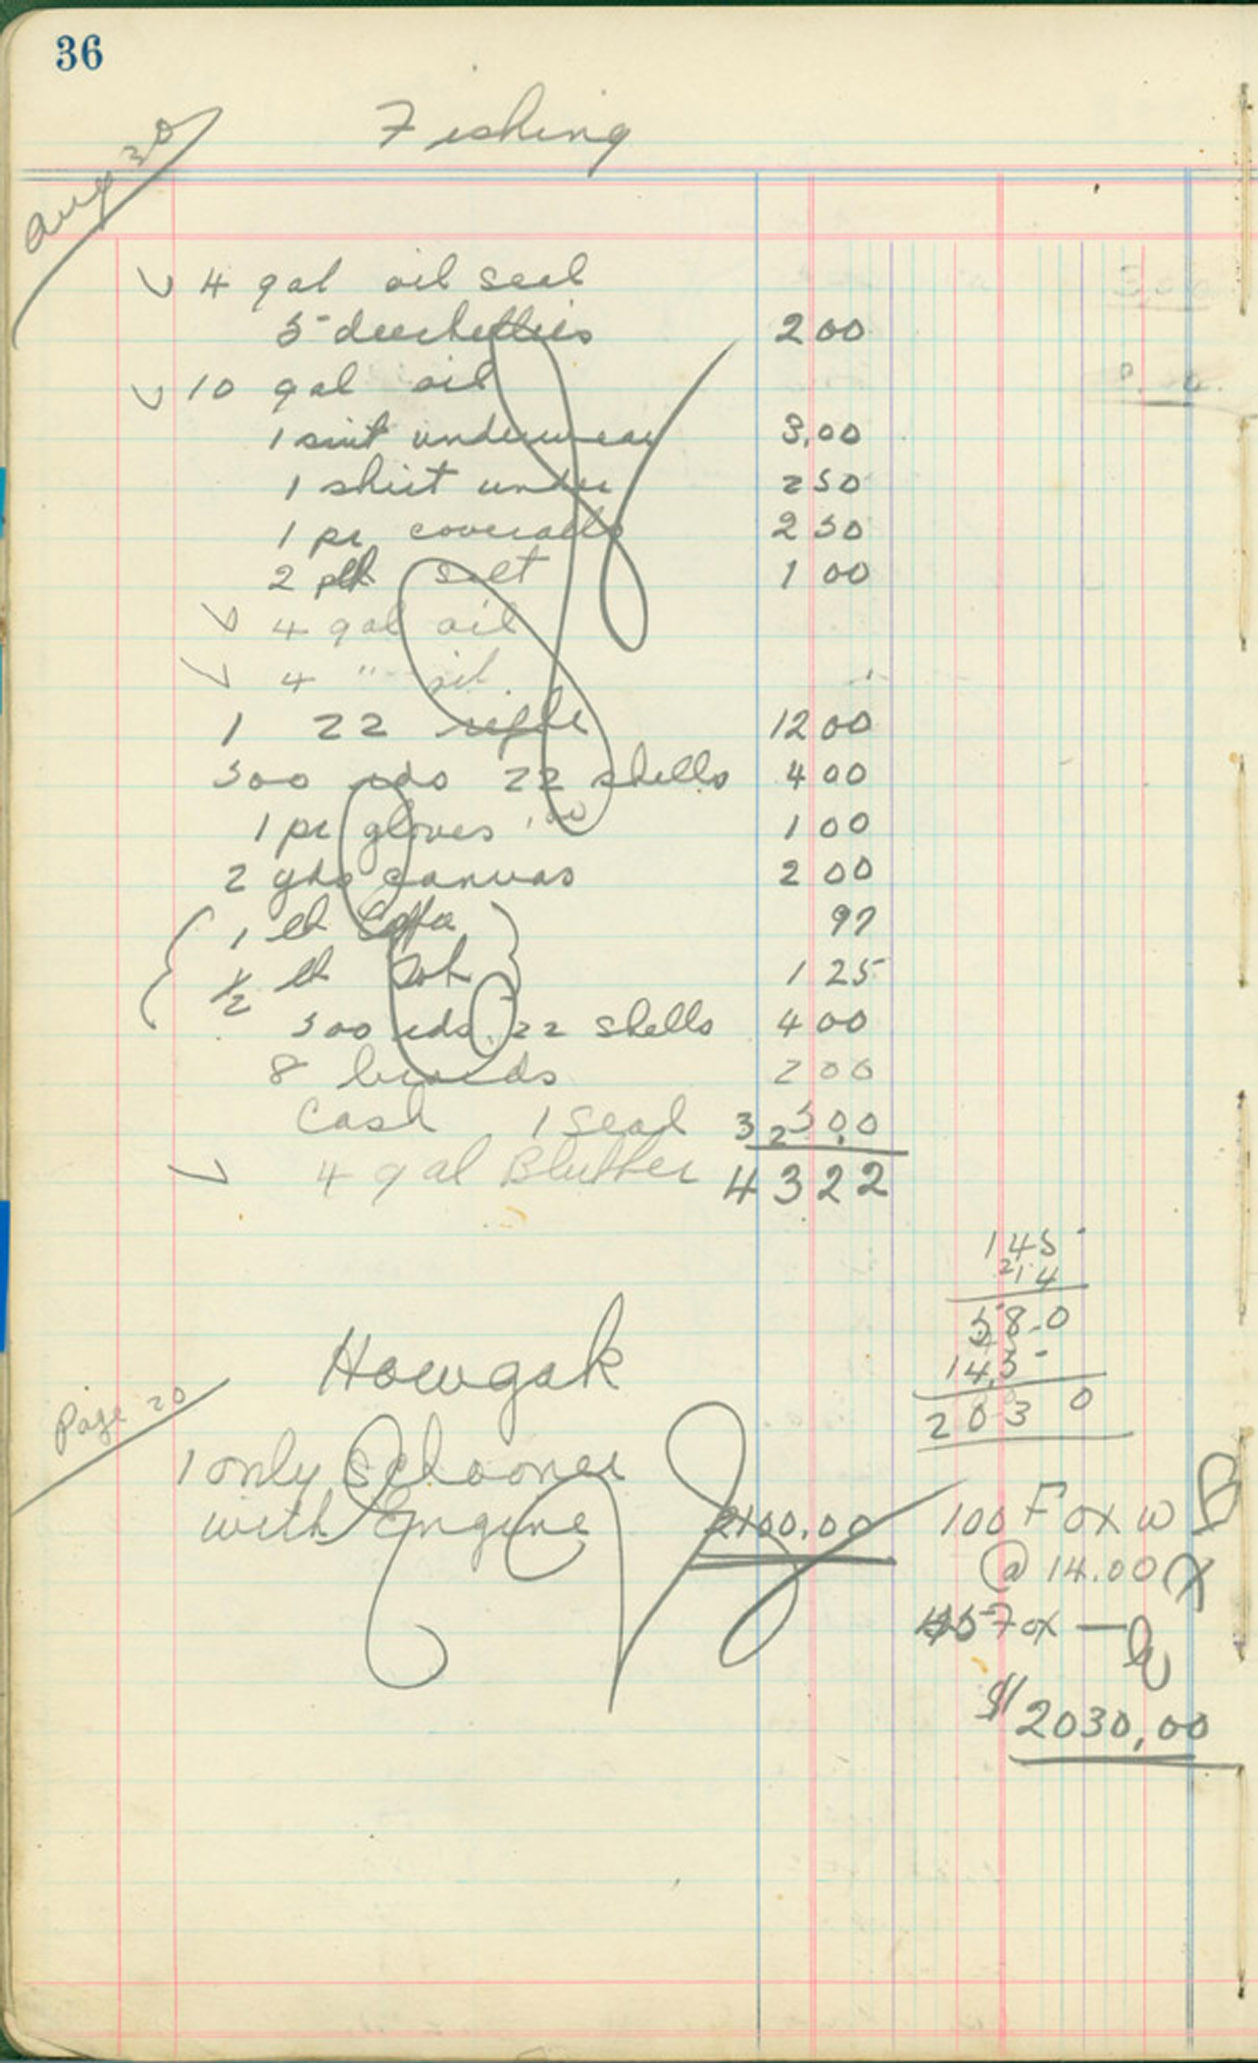 36
Fishing
Aug 30
4 gal oil seal
5 deerhides 2 00
10 gal oil
1 suit underwear 3.00
1 shirt under 2 50
1 pr coveralls 2 50
2 salt 1 00
4 gal oil
4 " oil
1 22 rifle 12 00
500 rds 22 shells 4 00
1 pr gloves .00 1 00
2 yds canvas 2 00
1 97
1/2 1 25
500 rds 22 shells 4 00
8 2 00
Cash 1 Seal 5 00
4 gal Blubber 43 22
145
214
58 0
145
203 0
Howgak
Page 20
1 only Schooner
with Engine 2100.00
100 Fox w
@ 14.00
145 Fox —
$2030.00